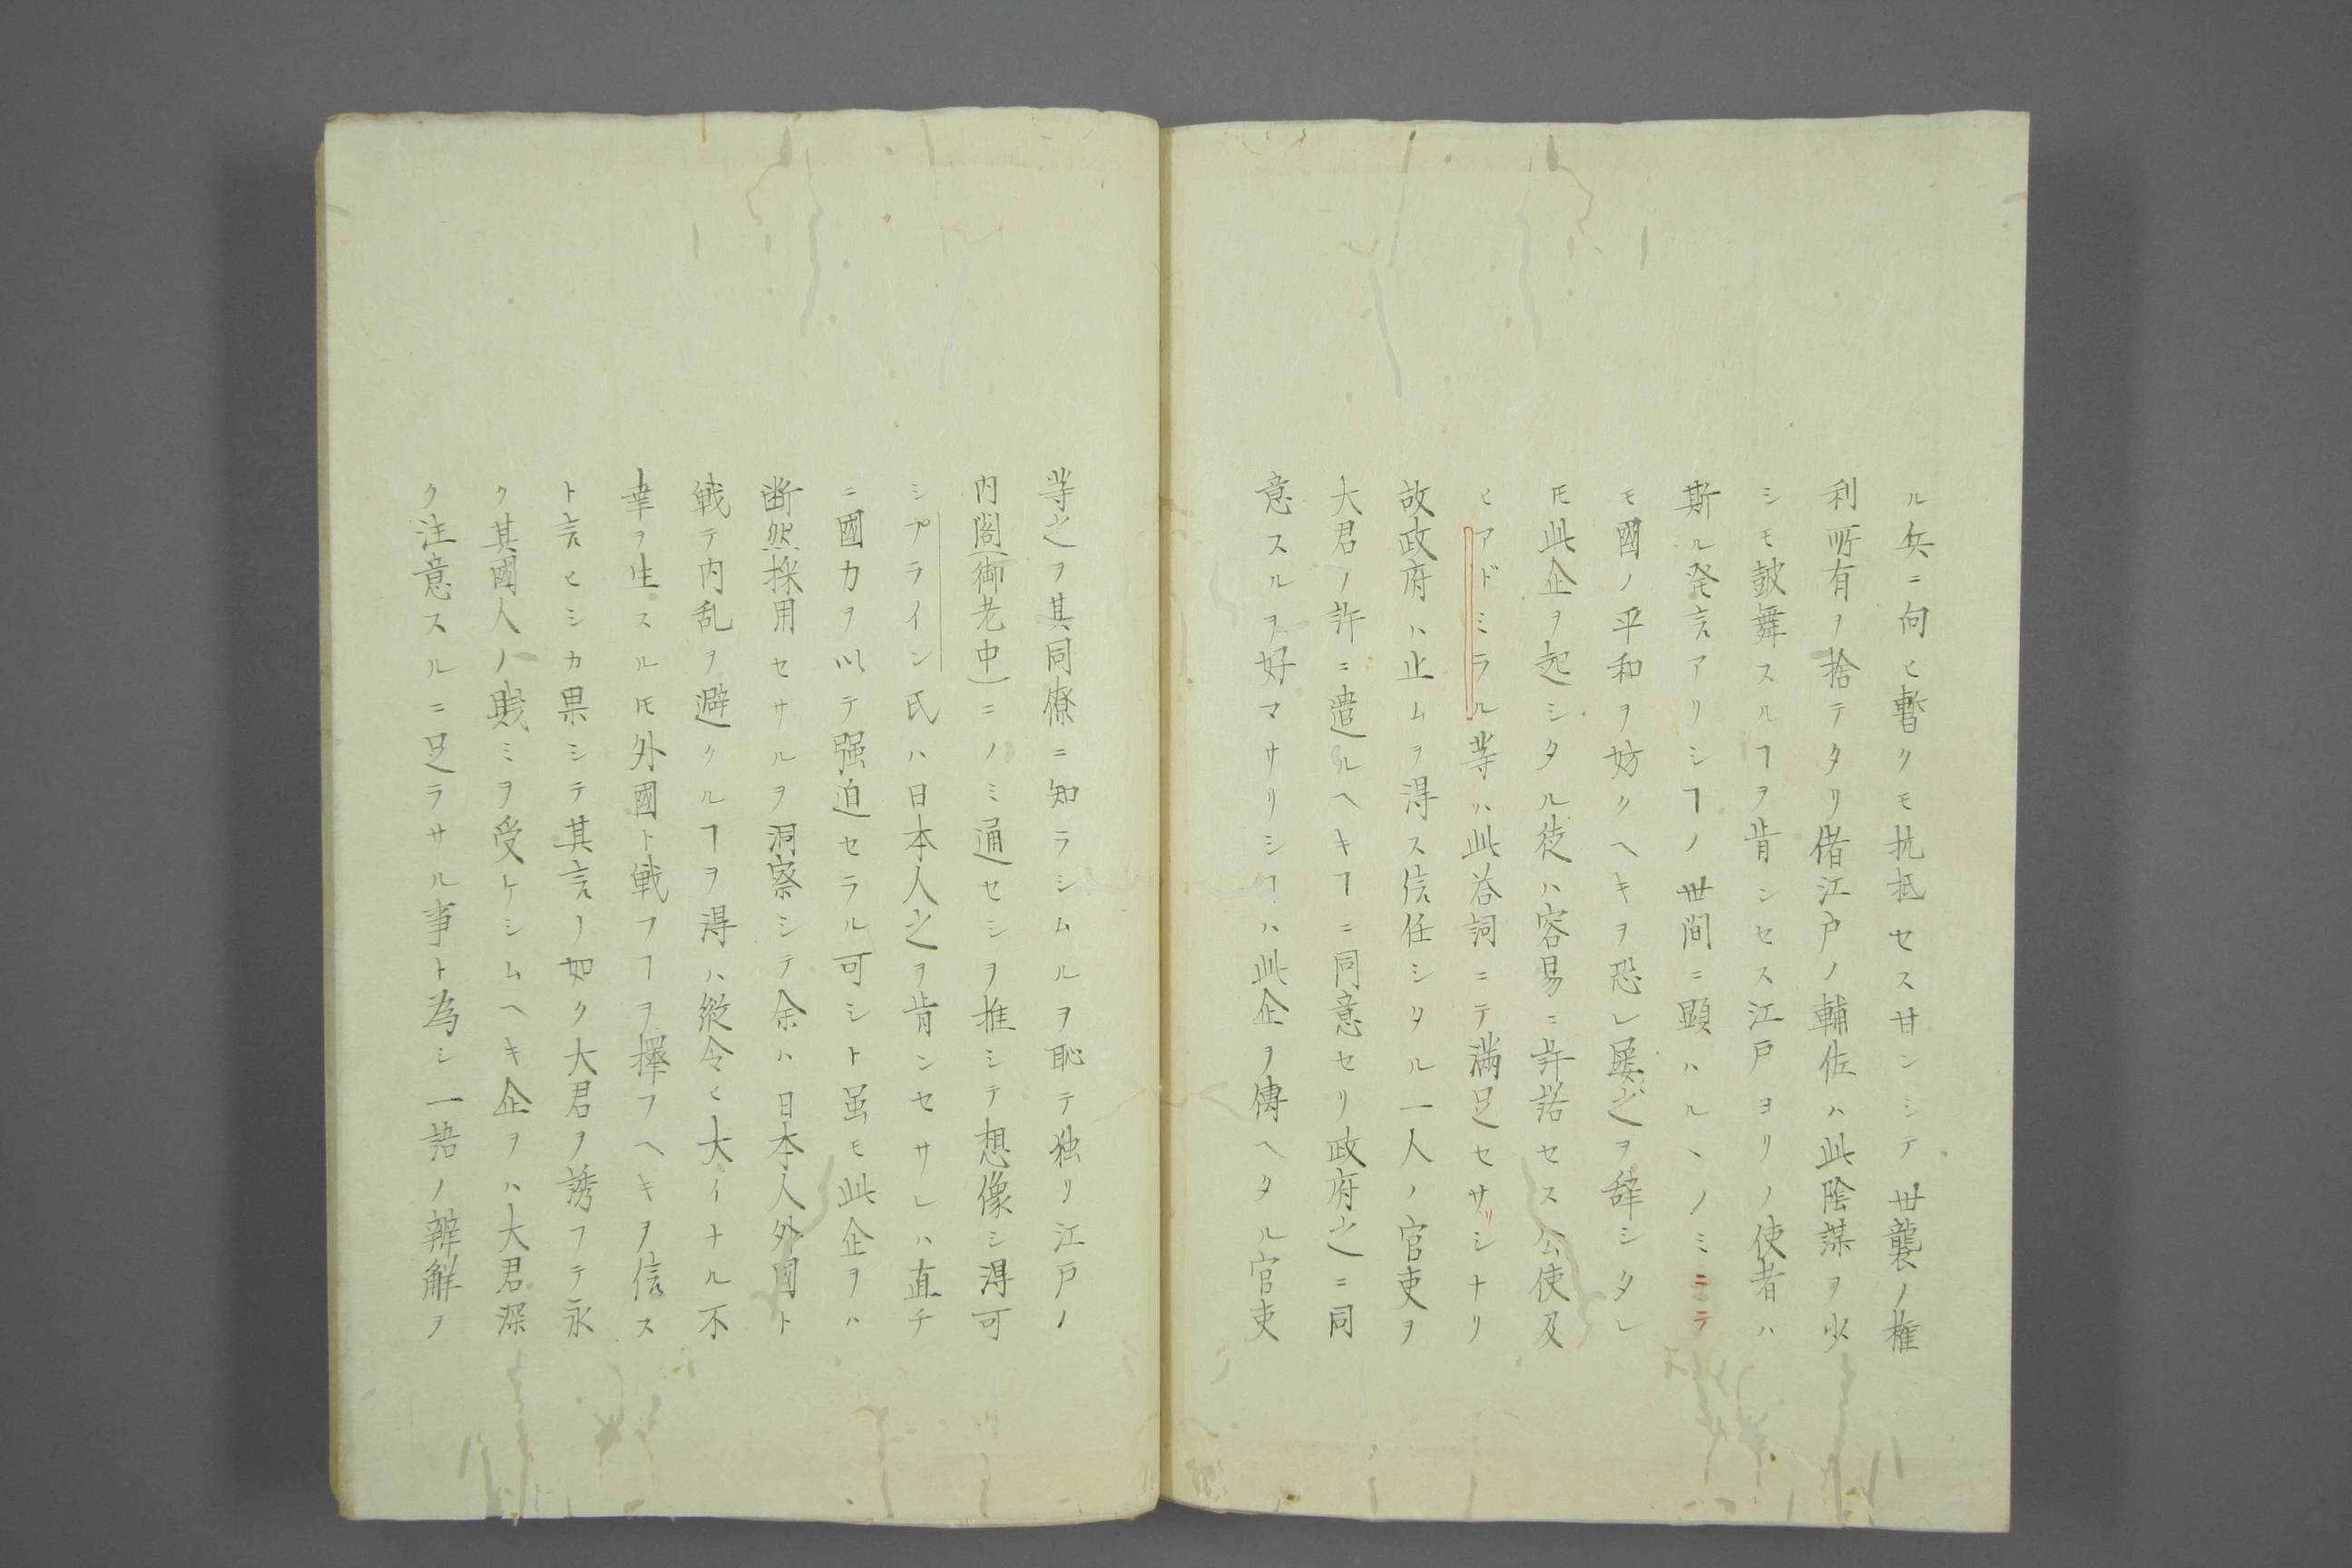 ル兵ニ向ヒ暫クモ抗抵セス甘ンシテ世襲ノ権
利所有ヲ捨テタリ偖江戸ノ輔佐ハ此陰謀ヲ少
シモ皷舞スルヿヲ肯ンセス江戸ヨリノ使者ハ
斯ル発言アリシヿノ世間ニ顕ハルヽノミニテ
モ國ノ平和ヲ妨クヘキヲ恐レ屡之ヲ辞シタレ
𪜈此企ヲ起シタル徒ハ容易ニ許諾セス公使及
ヒアドミラル等ハ此答詞ニテ満足セサリシナリ
故政府ハ止ムヲ得ス信任シタル一人ノ官吏ヲ
大君ノ許ニ遣ルヘキヿニ同意セリ政府之ニ同
意スルヲ好マサリシヿハ此企ヲ傳ヘタル官吏
等之ヲ其同僚ニ知ラシムルヲ恥テ独リ江戸ノ
内閣(御老中)ニノミ通セシヲ推シテ想像シ得可
シプライン氏ハ日本人之ヲ肯ンセサレハ直チ
ニ國力ヲ以テ强迫セラル可シト虽モ此企ヲハ
断然採用セサルヲ洞察シテ余ハ日本人外國ト
戦テ内乱ヲ避クルヿヲ得ハ縦令ヒ大イナル不
幸ヲ生スル𪜈外國ト戦フヿヲ擇フヘキヲ信ス
ト言ヒシカ果シテ其言ノ如ク大君ヲ誘フテ永
ク其國人ノ賎ミヲ受ケシムヘキ企ヲハ大君深
ク注意スルニ足ラサル事ト為シ一語ノ辨解ヲ